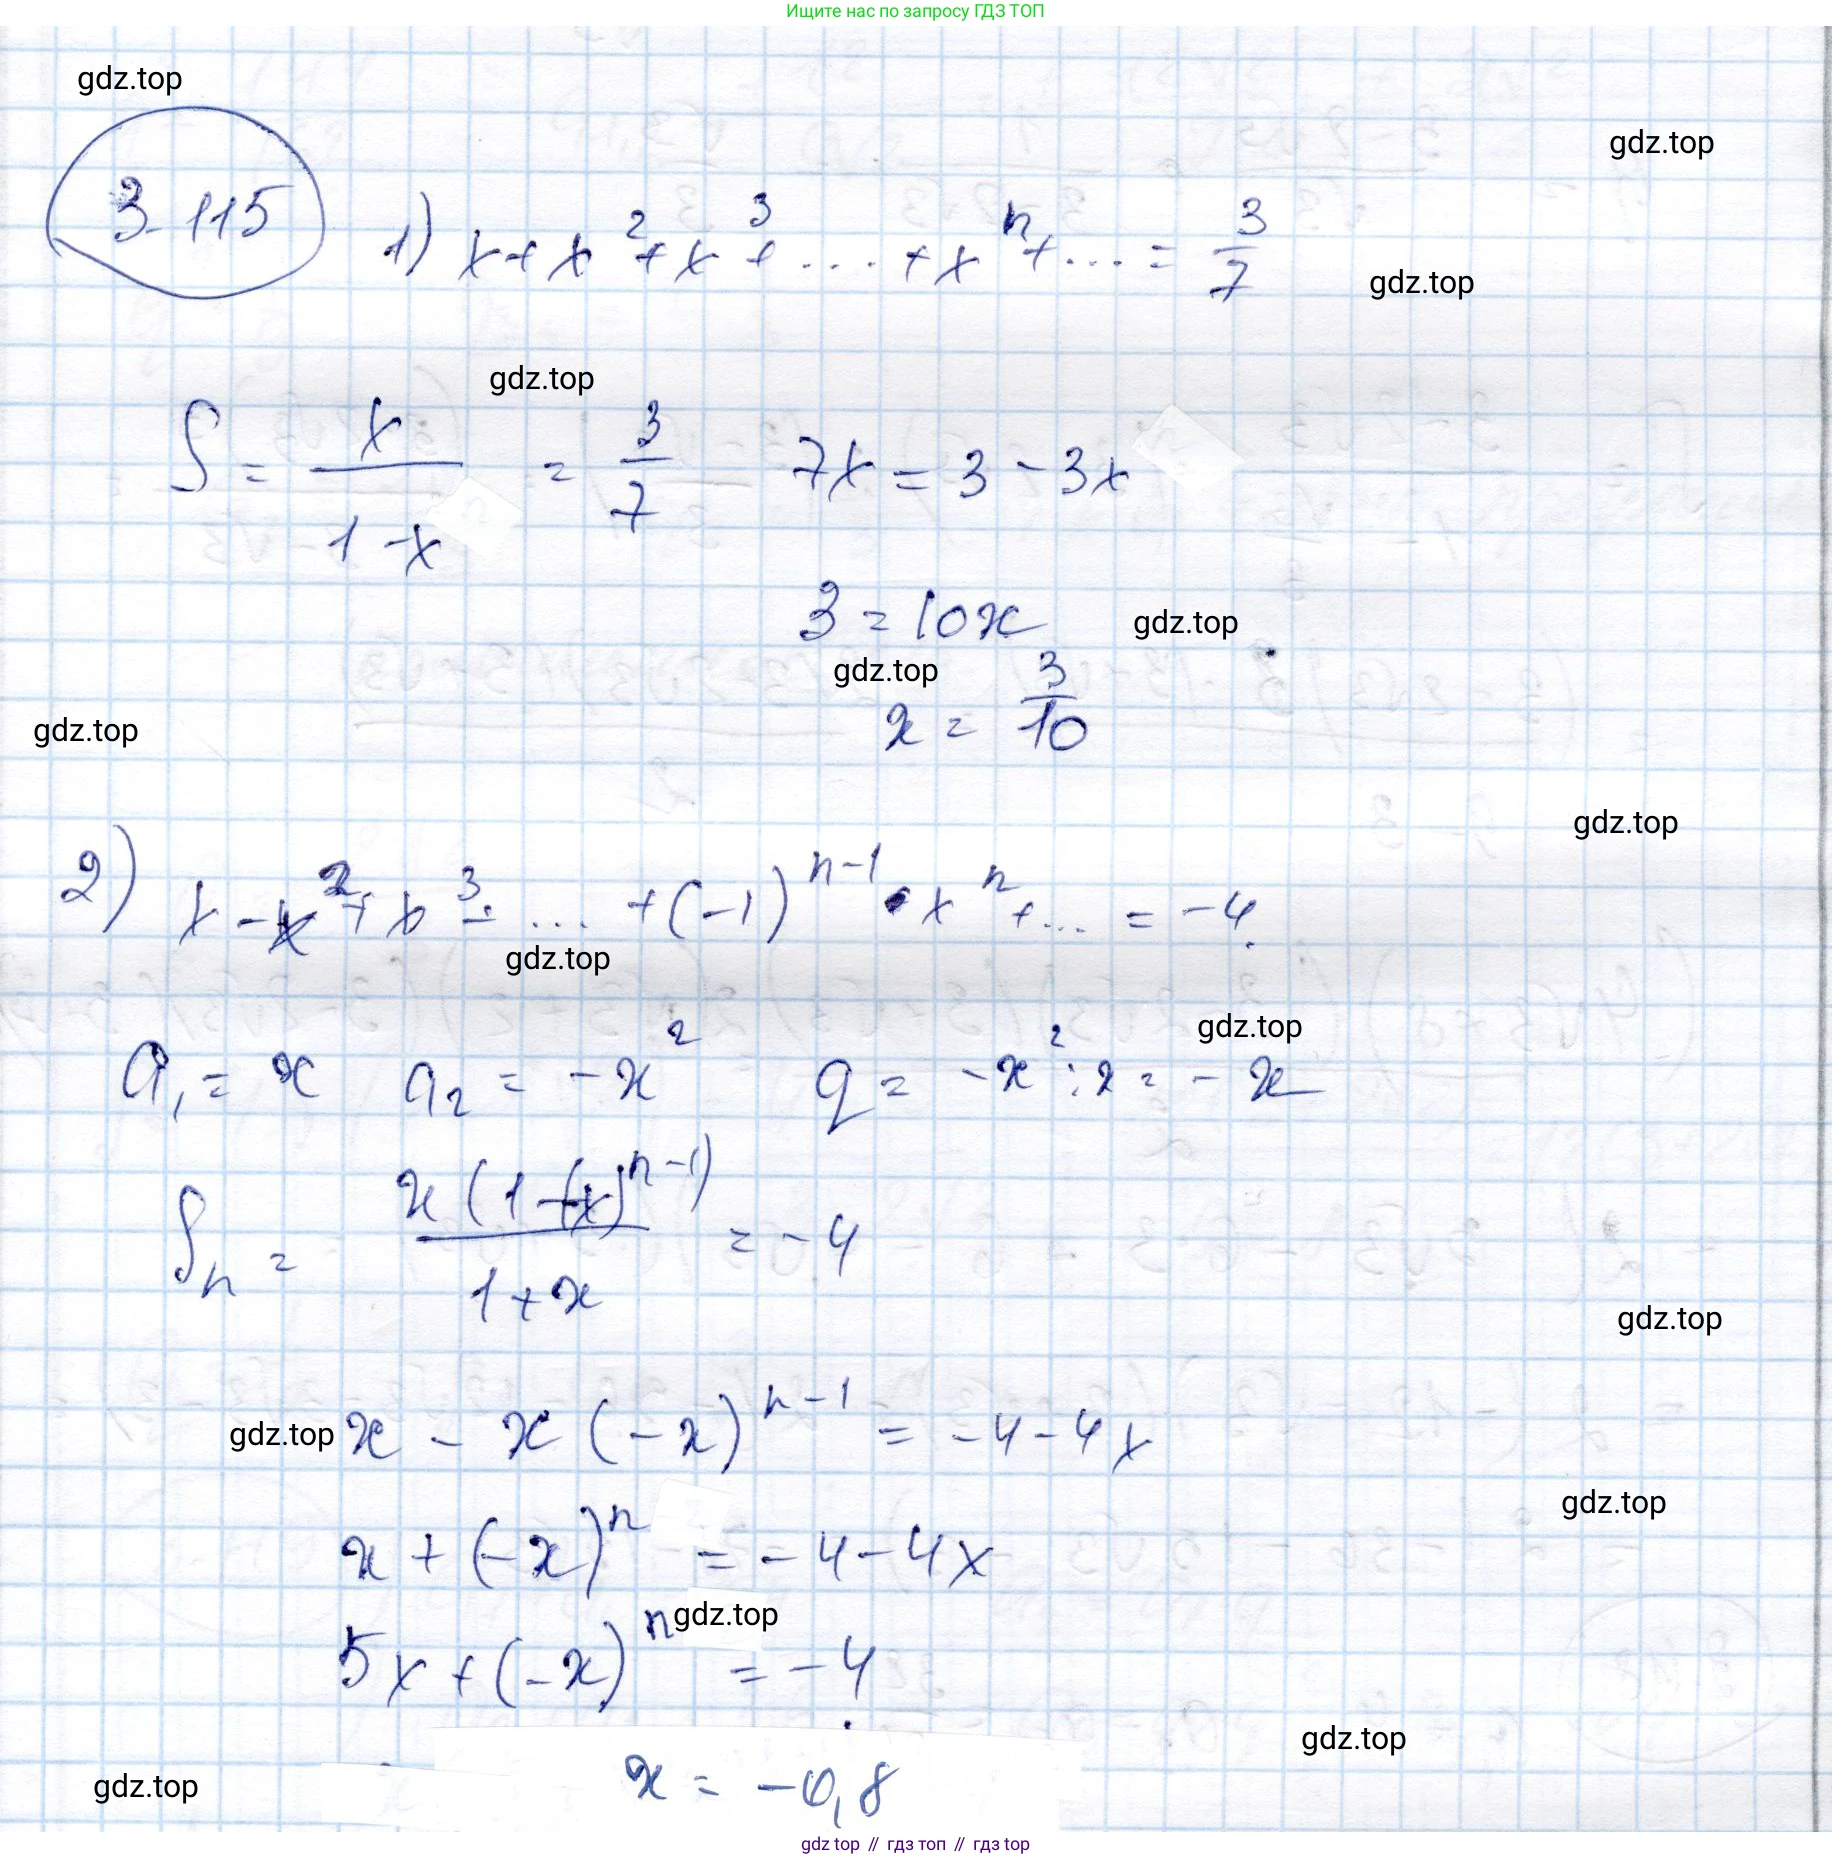 Ищите нас по запросу ГДЗ ТОП
gdz.top
gdz.top
3-115 1) x + x² + x³ + .... + x^n + ... = 3/7
gdz.top
gdz.top
S = x/(1-x) = 3/7 7x = 3 - 3x
3 = 10x
gdz.top
gdz.top
x = 3/10
gdz.top
gdz.top
2) x - x² + x³ - ... + (-1)^(n-1) · x^n + ... = -4.
gdz.top
gdz.top
a₁ = x a₂ = -x² q = -x² : x = -x
Sₙ = x(1-(-x)^(n-1))/(1+x) = -4
gdz.top
gdz.top
x - x(-x)^(n-1) = -4 - 4x
gdz.top
x + (-x)^n = -4 - 4x
gdz.top
5x + (-x)^n = -4
gdz.top
gdz.top
x = -0,8
gdz top // гдз топ // гдз top